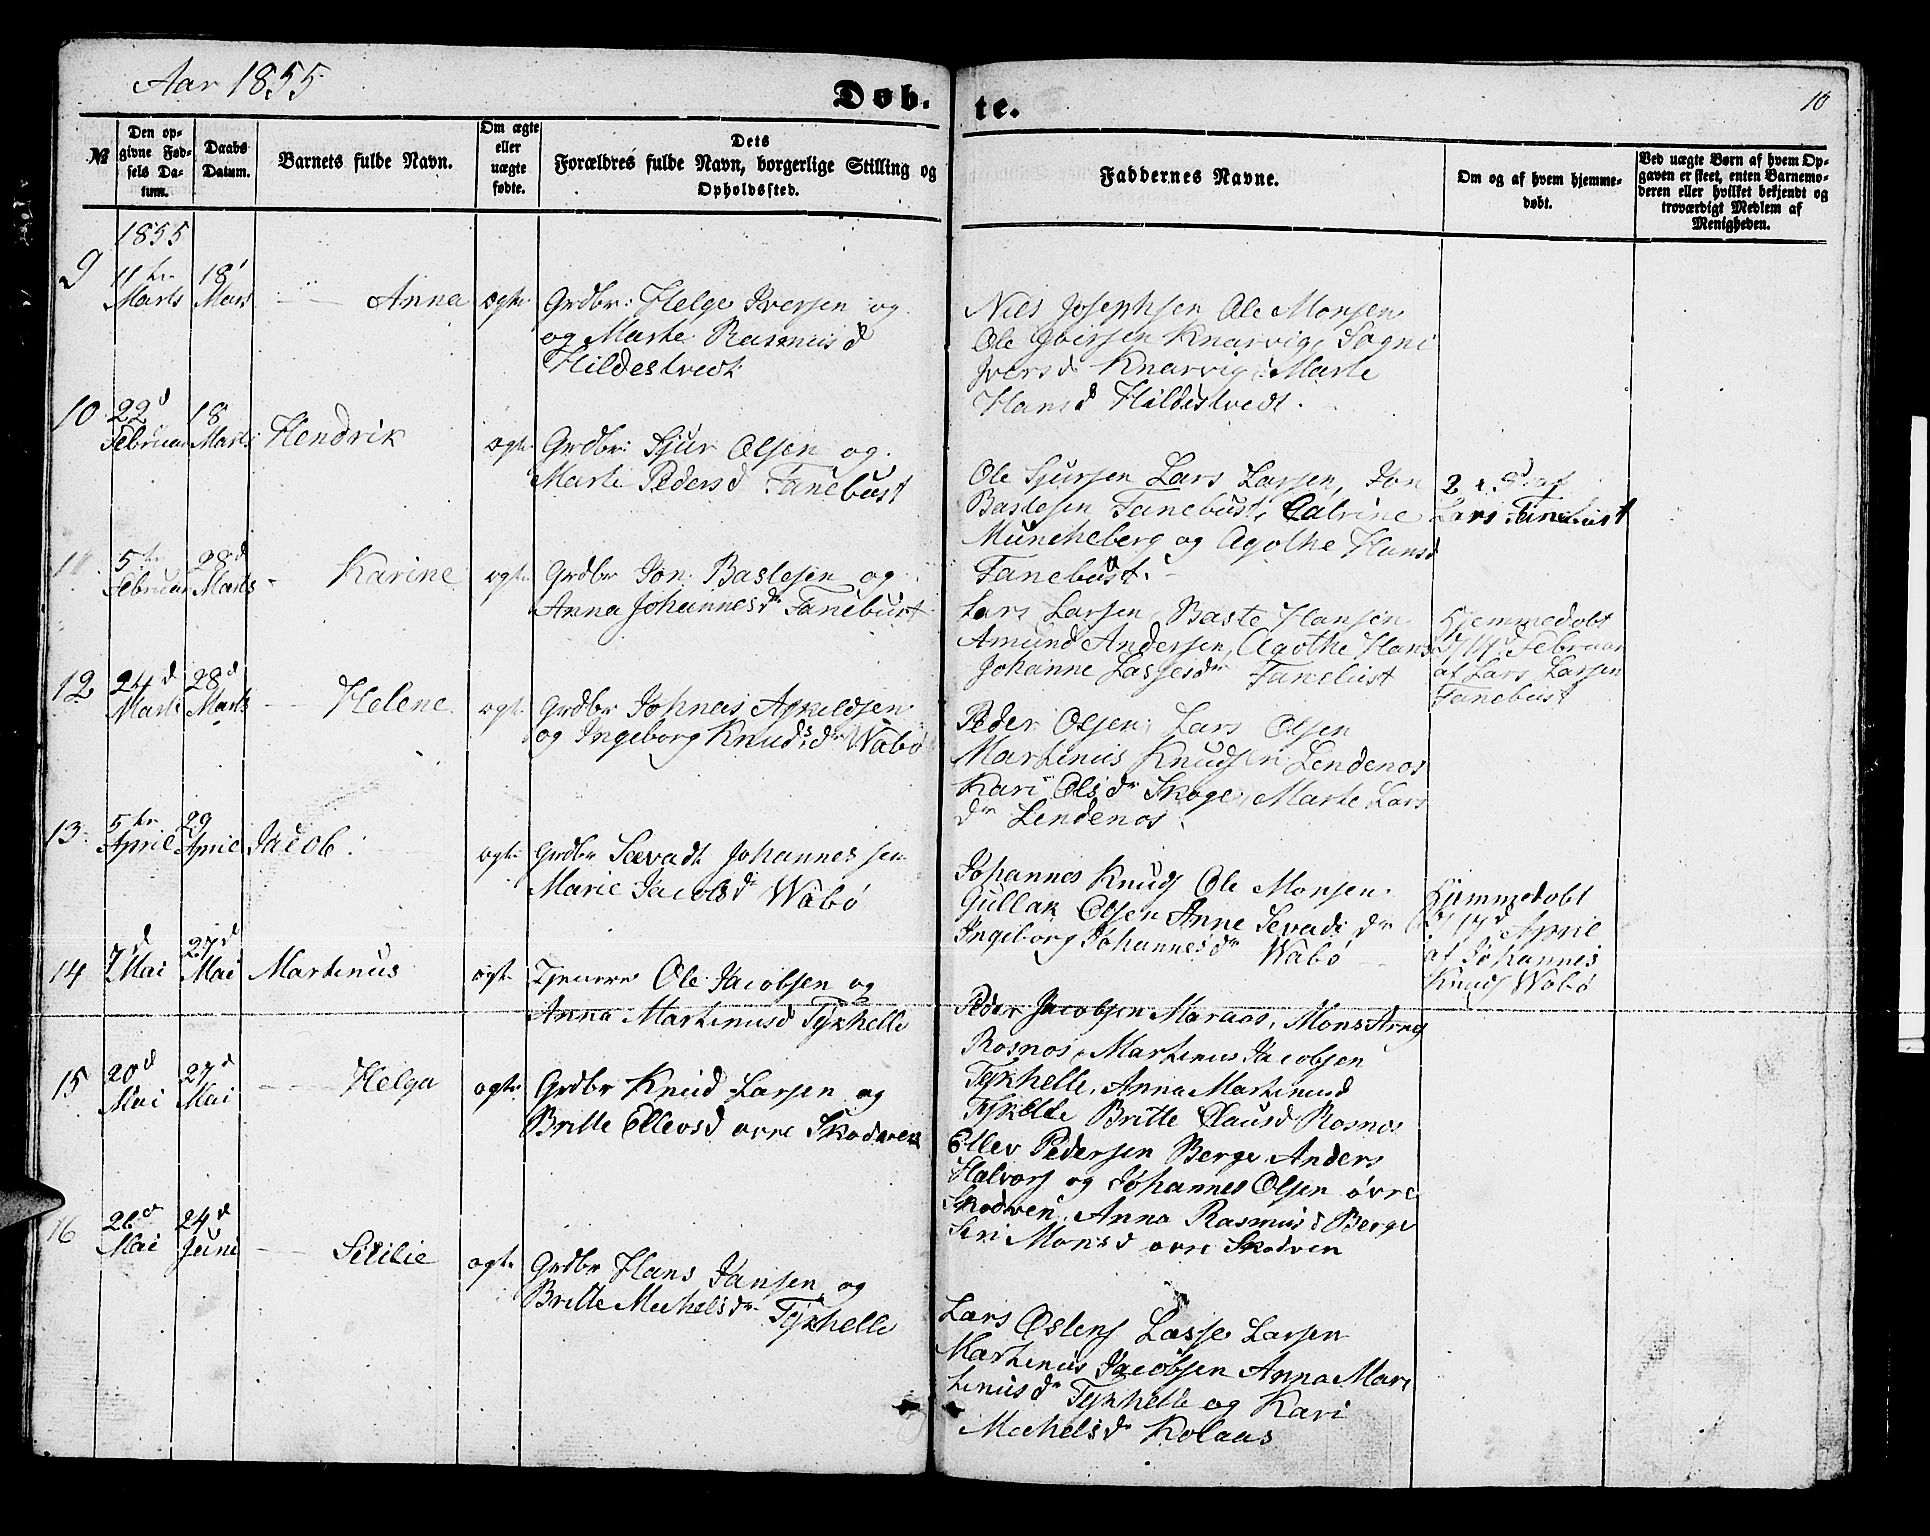 Aar 1855
Døb-
te.
10
№
Den op-
givne Fød-
sels Da-
tum.
Daabs
Datum.
Barnets fulde Navn.
Om ægte
eller
uægte
fødte.
Dets
Forældres fulde Navn, borgerlige Stilling og
Opholdssted.
Faddernes Navne.
Om og af hvem hjemme-
døbt.
Ved uægte Børn af hvem Op-
gaven er skeet, enten Barnemo-
deren eller hvilket bekjendt og
troværdigt Medlem af
Menigheden.
1855
9
11te
Marts
18
Mars
Anna
ægte
Grdbr: Helge Iversen og
og Marte Rasmusd
Hildestvedt
Nils Josephsen Ole Monsen
Ole Iversen Knarvig, Sogni
Iversd Knarvig Marte
Hansd Hildestvedt.
10
22d
Februar
18
Marts
Hendrik
ægt.
Grdbr: Sjur Olsen og
Marte Pedersd Fanebust
Ole Sjursen Lars Larsen, Jon
Bastesen Fanebust, Catrine
Muncheberg og Agothe Hansd
Fanebust.
af
Lars Fanebust
11
5te
Februar
28d
Marts
Karine
ægt.
Grdbr Jon Bastesen og
Anna Johannesdr Fanebust
Lars Larsen, Baste Hansen
Amund Andersen, Agothe Hans
Johanne Lassesdr Fanebust
Hjemmedøbt
14d Februar
af Lars Larsen
Fanebust
12
24d
Marts
28d
Marts
Helene
ægt.
Grdbr Johneis Askeldsen
og Ingeborg Knudsdr Wabø
Peder Olsen, Lars Olsen
Martinus Knudsen Lendenos
Kari Olsdr Skoge, Marte Lars
dr Lendenos.
13
5te
April
29
April
Jacob.
ægt.
Grdbr Sævadt Johannessen
Marie Jacobsdr Wabø
Johannes Knuds Ole Monsen
Gullak Olsen Anne Sevadsdr
Ingeborg Johannesdr Wabø
Hjemmedøbt
17d April
af Johannis
Knuds Wabø
14
7d
Mai
27d
Mai
Martinus
ægt.
Tjenere Ole Jacobsen og
Anna Martinusd Tyxhelle
Peder Jacobsen Maraas, Mons Arnes
Rosnos, Martinus Jacobsen
Tyxhelle, Anna Martinusd
Tyxelle Britte Clausd Rosnos
15
20d
Mai
27d
Mai
Helga
ægt.
Grdbr Knud Larsen og
Britte Ellevsd øvre Skodven
Ellev Pedersen Berge Anders
Halvors og Johannes Olsen øvre
Skodven, Anna Rasmusd Berge
Siri Monsd øvre Skodven
16
26d
Mai
24d
Juni
Sicilie
ægt.
Grdbr Hans Jansen og
Britte Michelsdr Tyxhelle
Lars Ostens Lasse Larsen
Martinus Jacobsen Anna Mar
tinusdr Tyxhelle og Kari
Michelsdr Kolaas